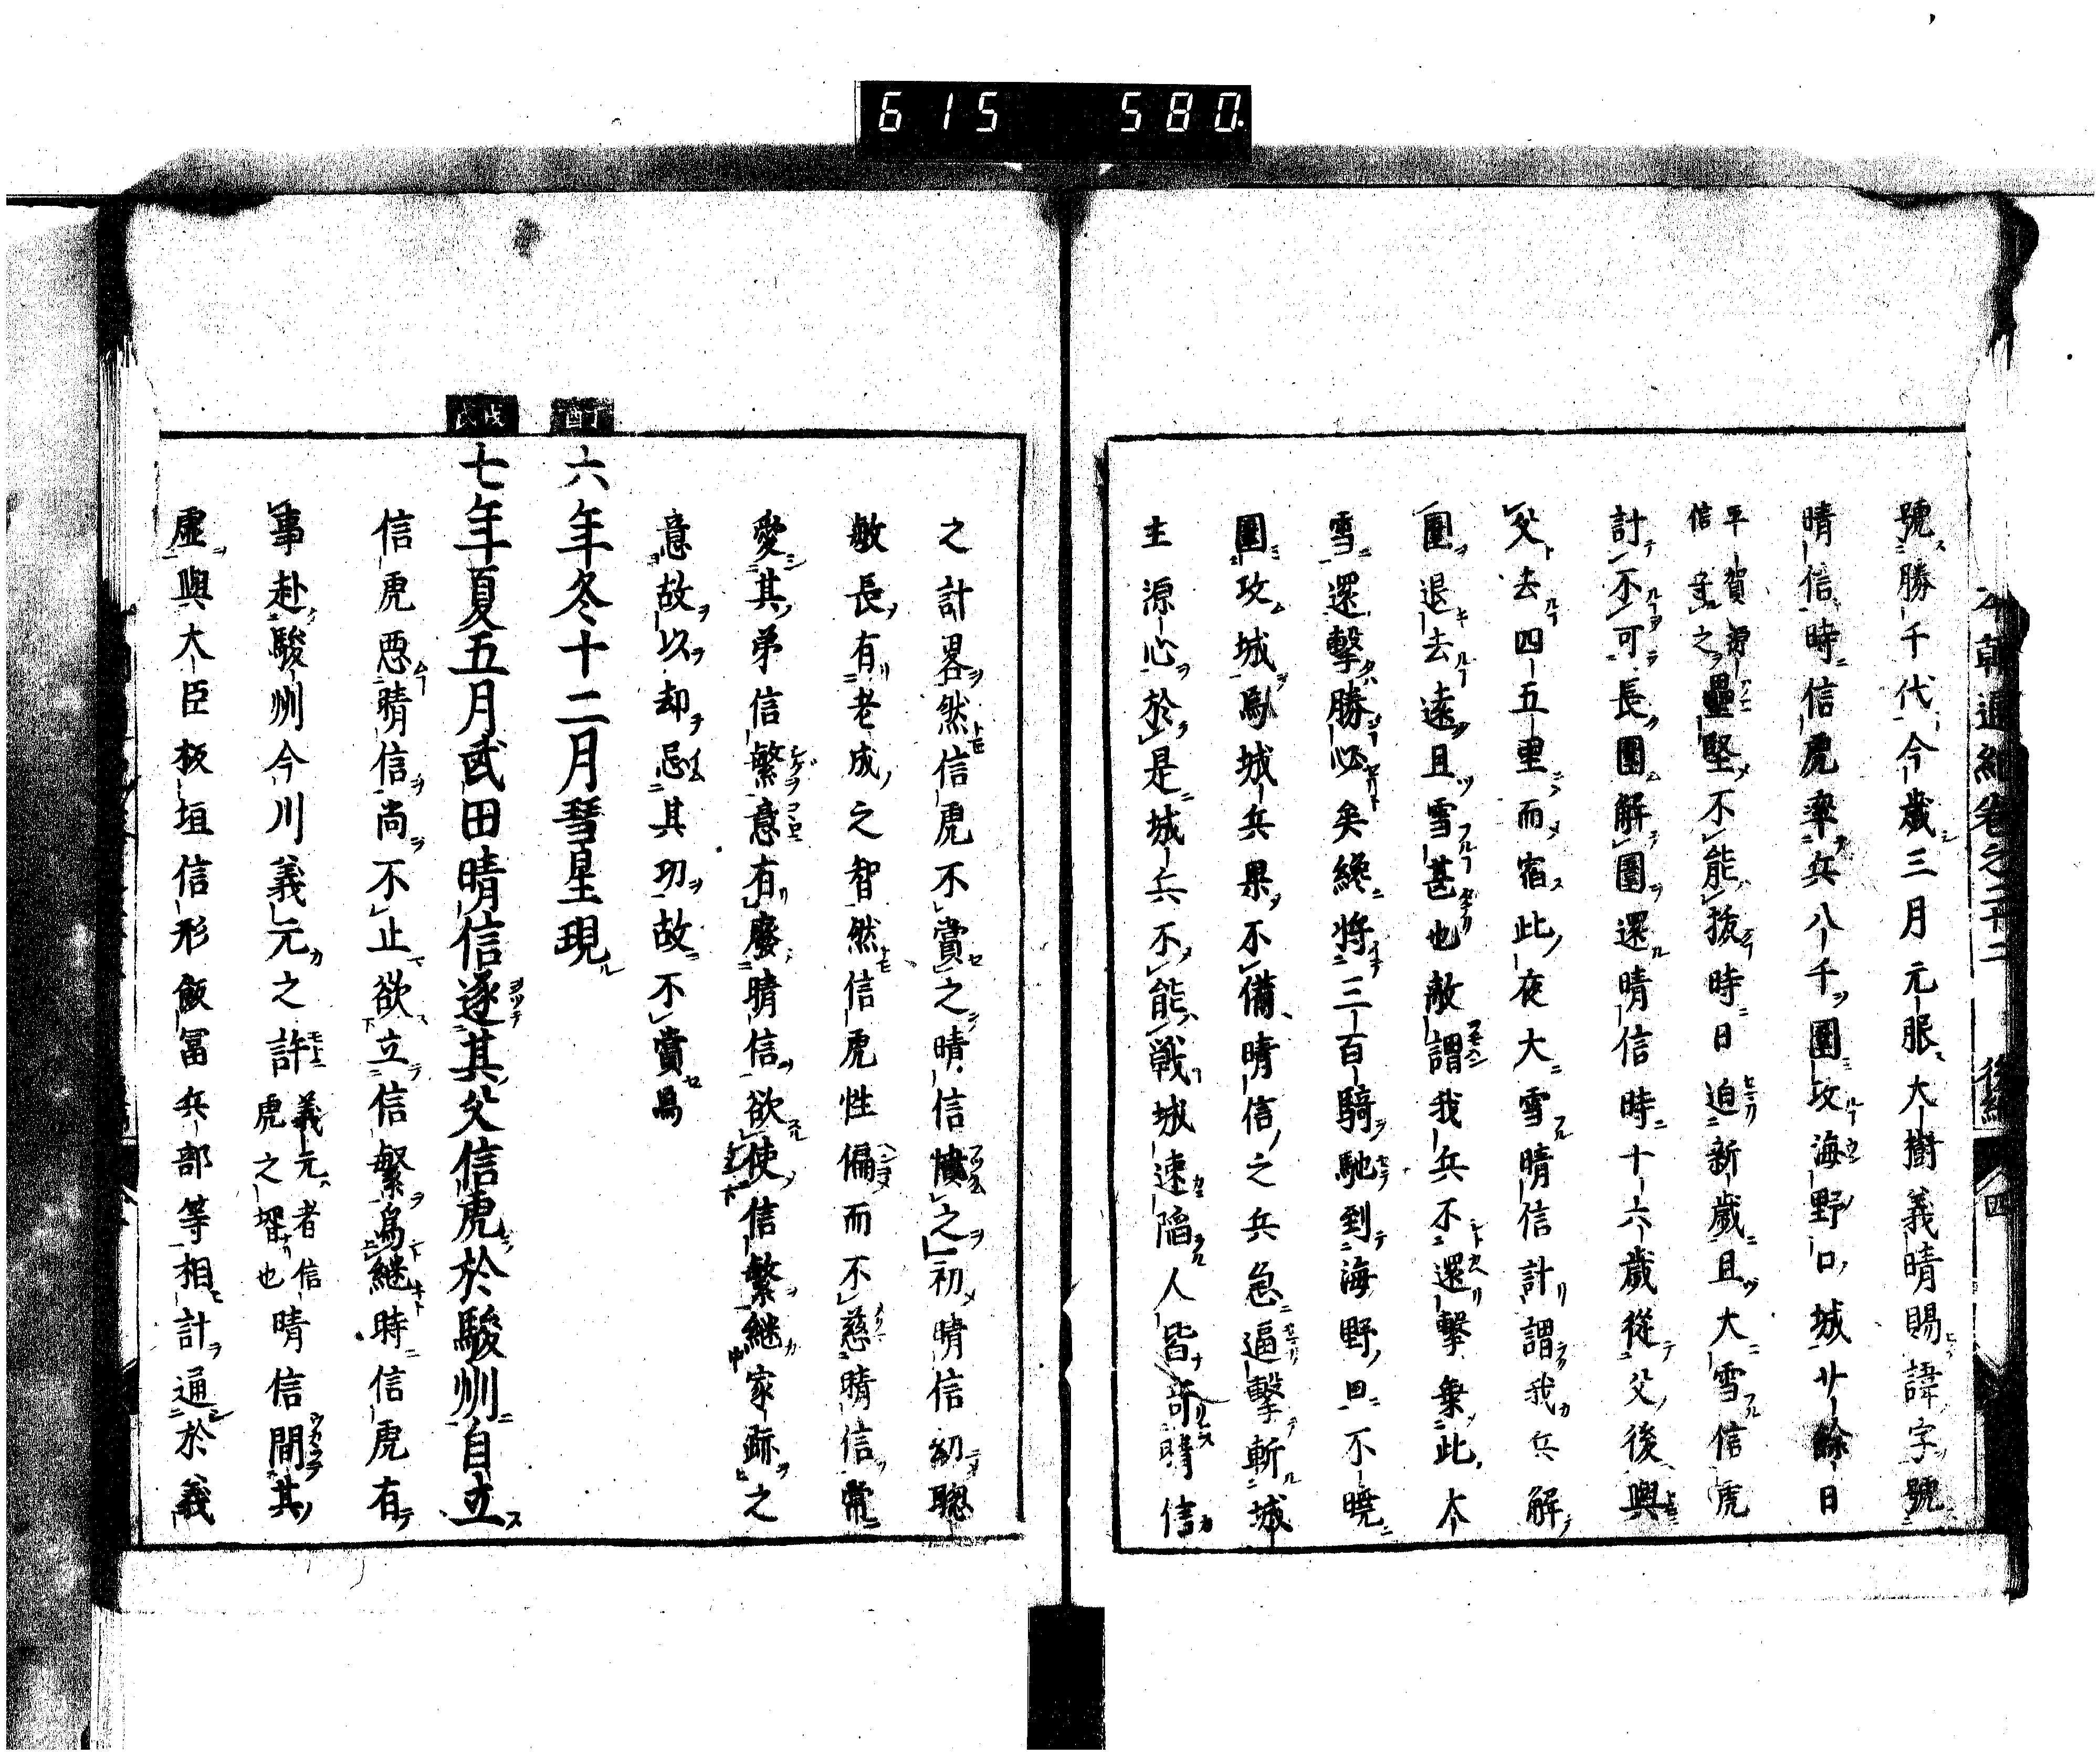 615 580
本朝通紀卷之二十二 後編 四
號勝千代今歲三月元服大樹義晴賜諱字號
晴信時信虎率兵八千圍攻海野口城廿餘日
平賀源信守之壘堅不能拔時日迫新歲且大雪信虎
計不可長圍解圍還晴信時十六歲從父後與
父去四五里而宿此夜大雪晴信計謂我兵解
圍退去遠且雪甚也敵謂我兵不還擊乗此大
雪還擊勝必矣纔將三百騎馳到海野口不曉
圍攻城城兵果不備晴信之兵急逼擊斬城
主源心於是城兵不能戰城速陷人皆奇晴信
之計畧然信虎不賞之晴信憤之初晴信幼聰
敏長有老成之智然信虎性偏而不慈晴信常
愛其弟信繁意有廢晴信欲使信繁繼家跡之
意故以却忌其功故不賞焉
丁酉
六年冬十二月彗星現
戊戌
七年夏五月武田晴信逐其父信虎於駿州自立
信虎惡晴信尚不止欲立信繁爲繼時信虎有
事赴駿州今川義元之許義元者信虎之壻也晴信間其
虛與大臣板垣信形飯冨兵部等相計通於義